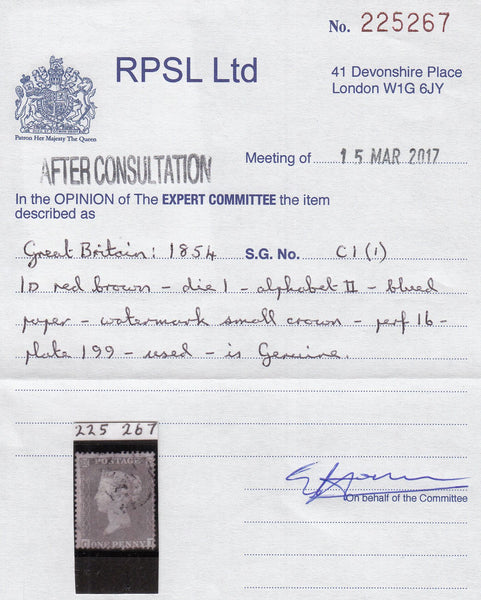 No. 225267
RPSL Ltd
41 Devonshire Place
London W1G 6JY
Patron Her Majesty The Queen
AFTER CONSULTATION
Meeting of 15 MAR 2017
In the OPINION of The EXPERT COMMITTEE the item
described as
Great Britain: 1854 S.G. No. C1(1)
1D red brown - die 1 - alphabet II - blued
paper - watermark small crown - perf 16 -
plate 199 - used - is Genuine.
225 267
POSTAGE
ONE PENNY
On behalf of the Committee